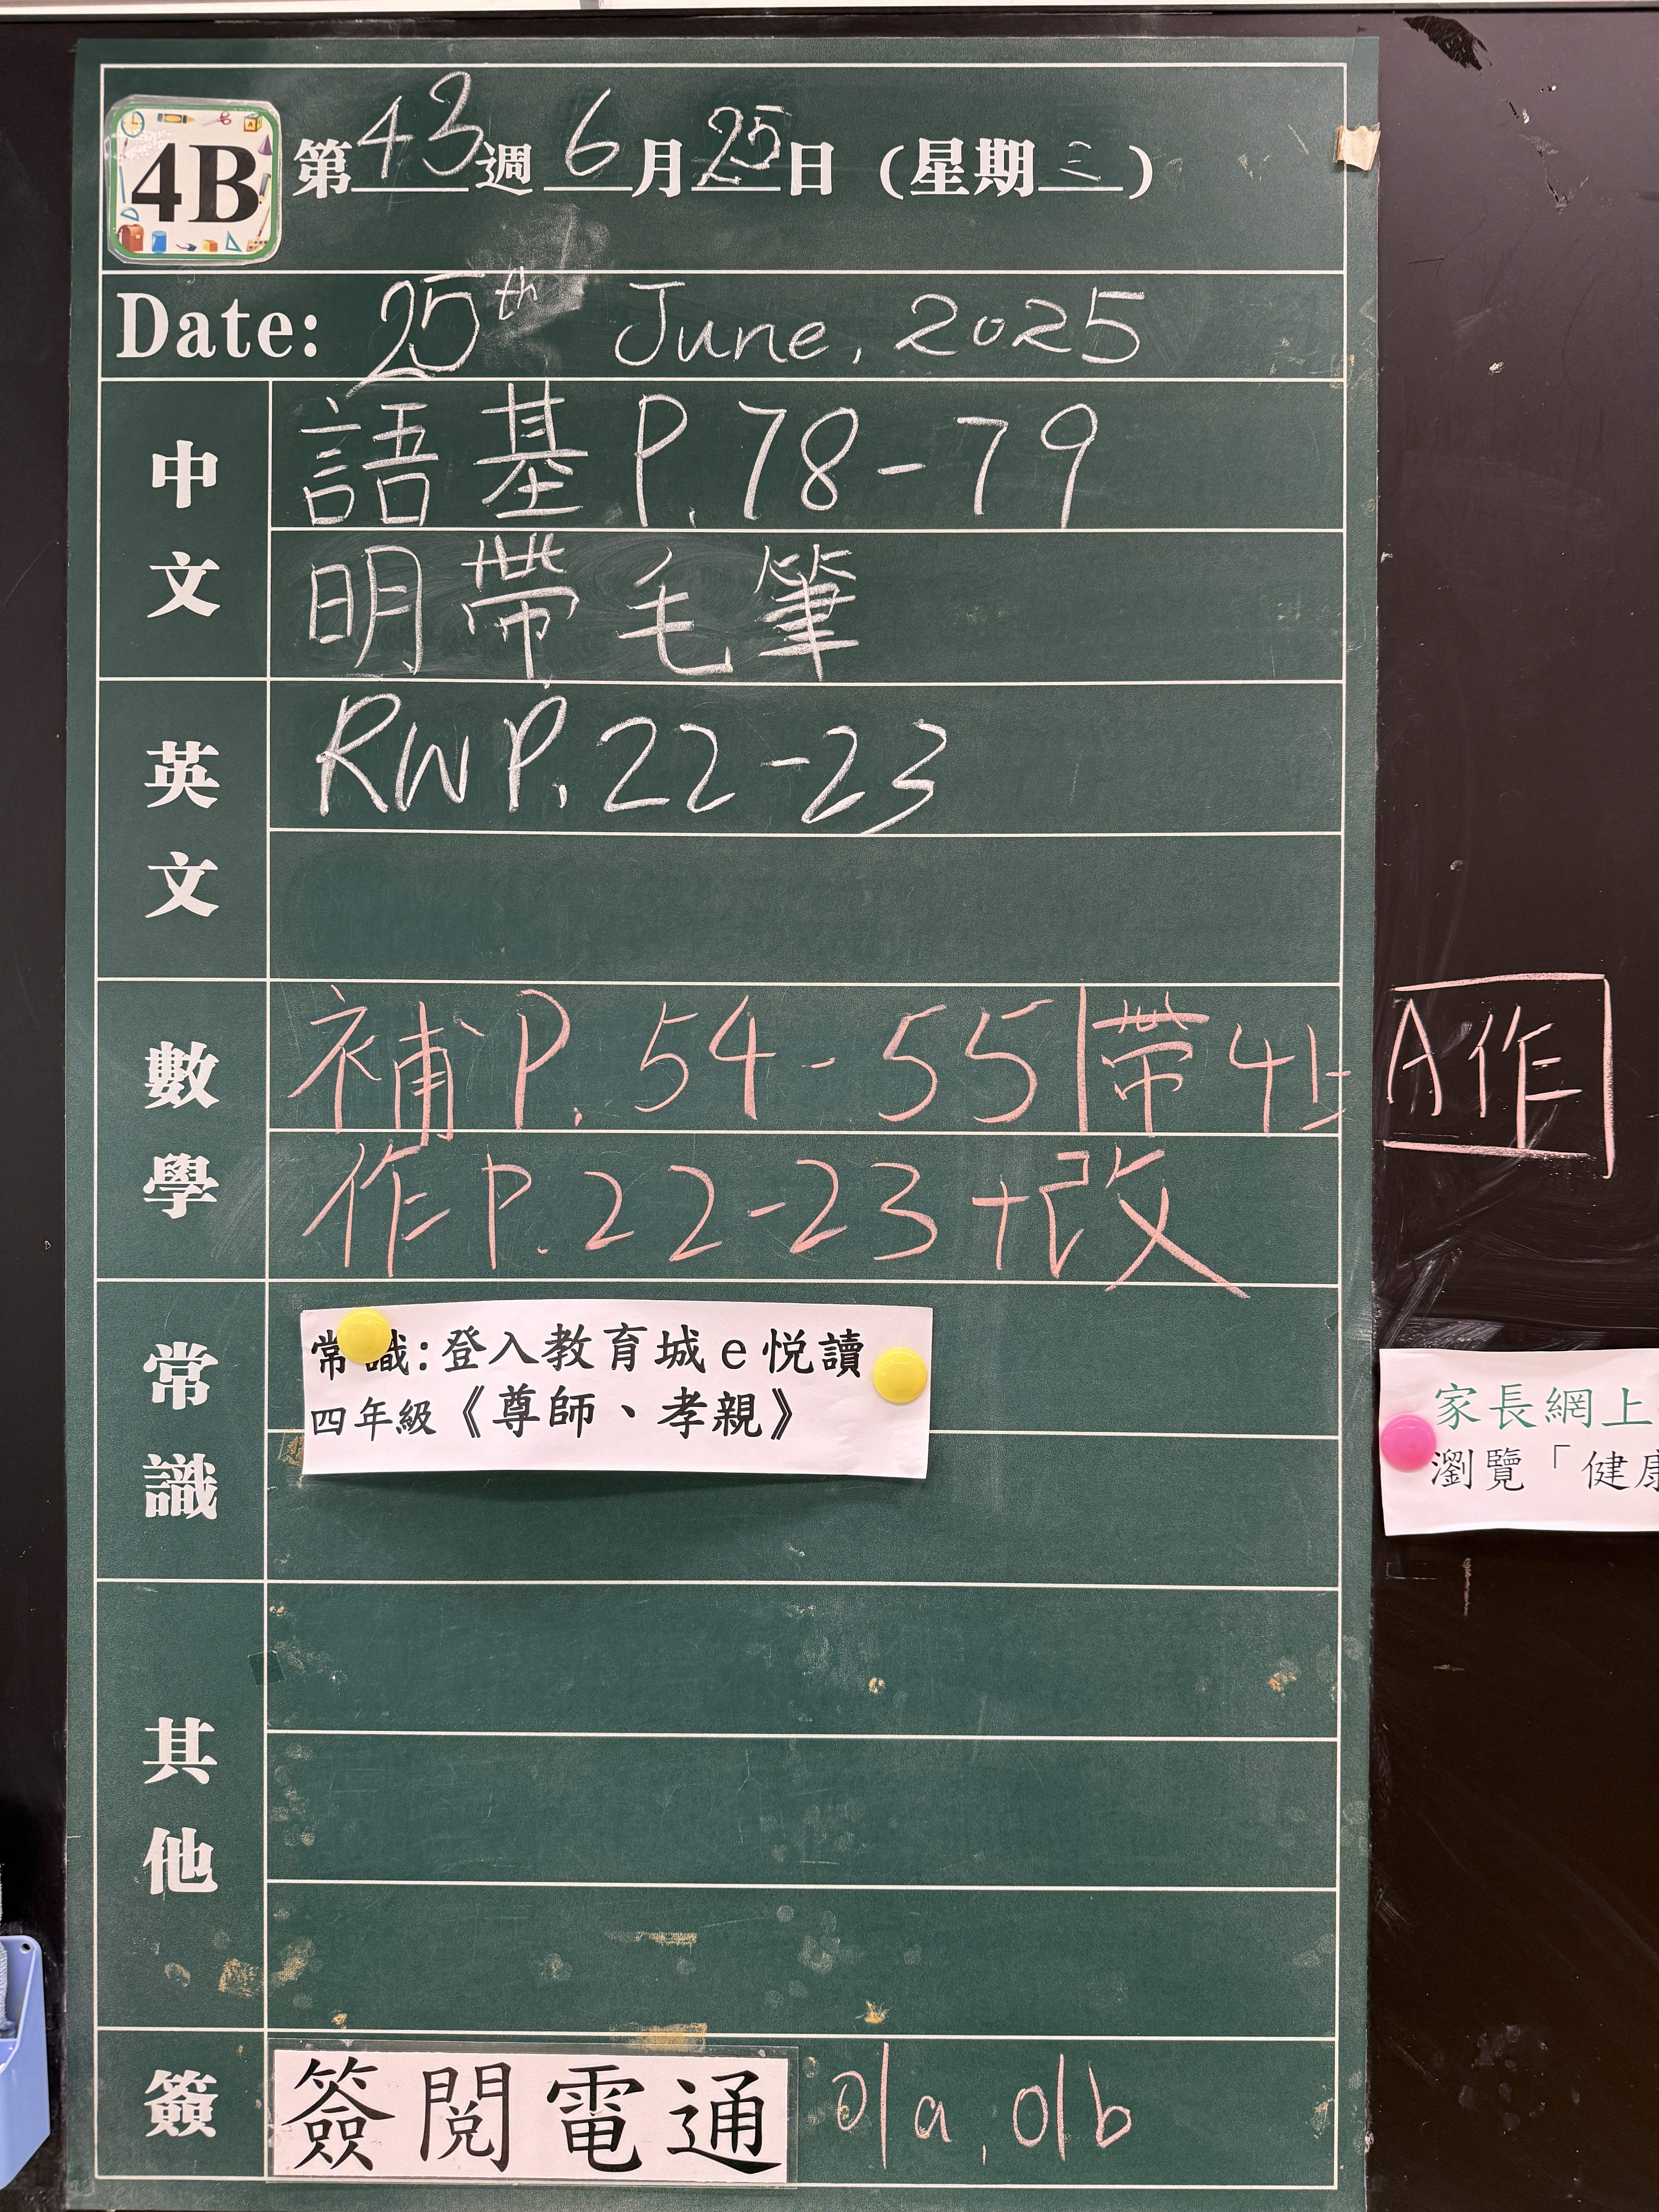 4B 第43週 6月25日 (星期三)
Date: 25th June, 2025
中文
語基 P.78-79
明帶毛筆
英文
RW P.22-23
數學
補 P.54-55|帶4上A作
作 P.22-23+改
常識
常識:登入教育城e悅讀
四年級《尊師、孝親》
家長網上
瀏覽「健康
其他
簽
簽閱電通 01a, 01b